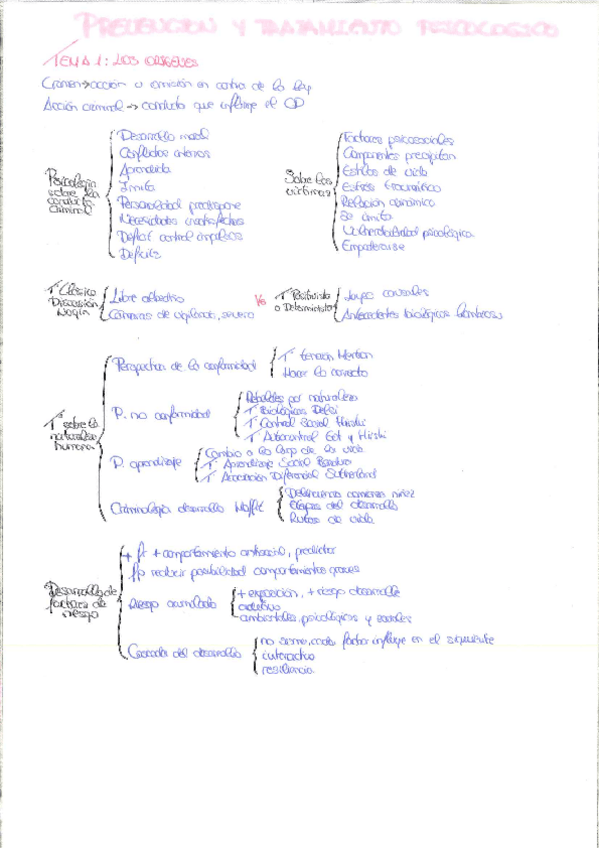 PREVENCION Y TRATAMIENTO PSICOLOGICO
TEMA 1: LOS ORIGENES
Crimen → acción u omisión en contra de la ley
Acción criminal → conducta que influye el CP
Psicología sobre la conducta criminal
Desarrollo moral
Conflictos internos
Aprendida
Imita
Personalidad predispone
Necesidades insatisfechas
Déficit control impulsos
Déficits
Sobre las víctimas
Factores psicosociales
Componentes precipitan
Estilos de vida
Estrés traumático
Relación dinámico
Se imita
Vulnerabilidad psicológica
Empoderarse
Tª Clásica
Disuasión
Libre albedrío
Cámaras de vigilancia, severo
Vs
Tª Positivista o Determinista
Leyes causales
Antecedentes biológicos Lombroso
Tª sobre la naturaleza humana
Perspectiva de la conformidad
Tª tensión Merton
Hacer lo correcto
P. no conformidad
Rebeldes por naturaleza
Tª Biológicas
Tª Control Social Hirschi
Tª Autocontrol Got y Hirshi
P. aprendizaje
Cambio a lo largo de la vida
Tª Aprendizaje Social Bandura
Tª Asociación Diferencial Sutherland
Criminología desarrollo Moffit
Delincuencia comienza niñez
Etapas del desarrollo
Rutas de vida
Desarrollo de factores de riesgo
+ fr + comportamiento antisocial, predictor
fp reducir posibilidad comportamientos graves
Riesgo acumulado
+ exposición, + riesgo desarrolle
aditivo
ambientales, psicológicos y sociales
Cascada del desarrollo
no suma, cada factor influye en el siguiente
interactivo
resiliencia